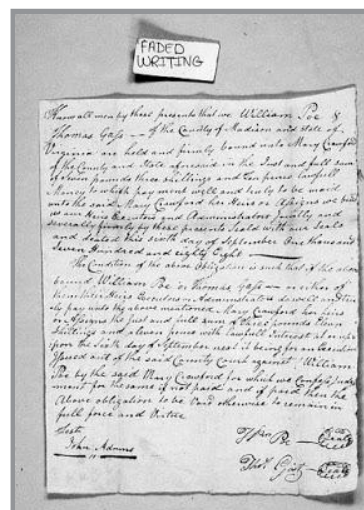 FADED
WRITING
Know all men by these presents that we William Poe &
Thomas Gass — of the County of Madison and State of
Virginia are held and firmly bound unto Mary Crawford
of the County and State aforesaid in the Just and full sum
of seven pounds three Shillings and ten pence lawfull
Money to which payment well and truly to be maid
unto the said Mary Crawford her Heirs or Assigns we bind
us our Heirs Executors and Administrators Jointly and
severally firmly by these presents Seald with our Seals
and deated this sixth day of September One thousand
Seven Hundred and eighty Eight
The Condition of the above Obligation is such that if the above
bound William Poe or Thomas Gass — or either of
them their Heirs Executors or Administrators do well and tru
ly pay unto the above mentioned Mary Crawford her heirs
or Assigns the just and full sum of three pounds eleven
Shillings and eleven pence with lawfull Interest at or up
upon the Sixth day of September next it being for an Execution
Issued out of the said County Court against William
Poe by the said Mary Crawford for which we Confess Judg
ment for the same if not paid and if paid then the
Above obligation to be Void otherwise to remain in
full force and Virtue
Teste
Wm Poe Seal
John Adams
Thos Gass Seal